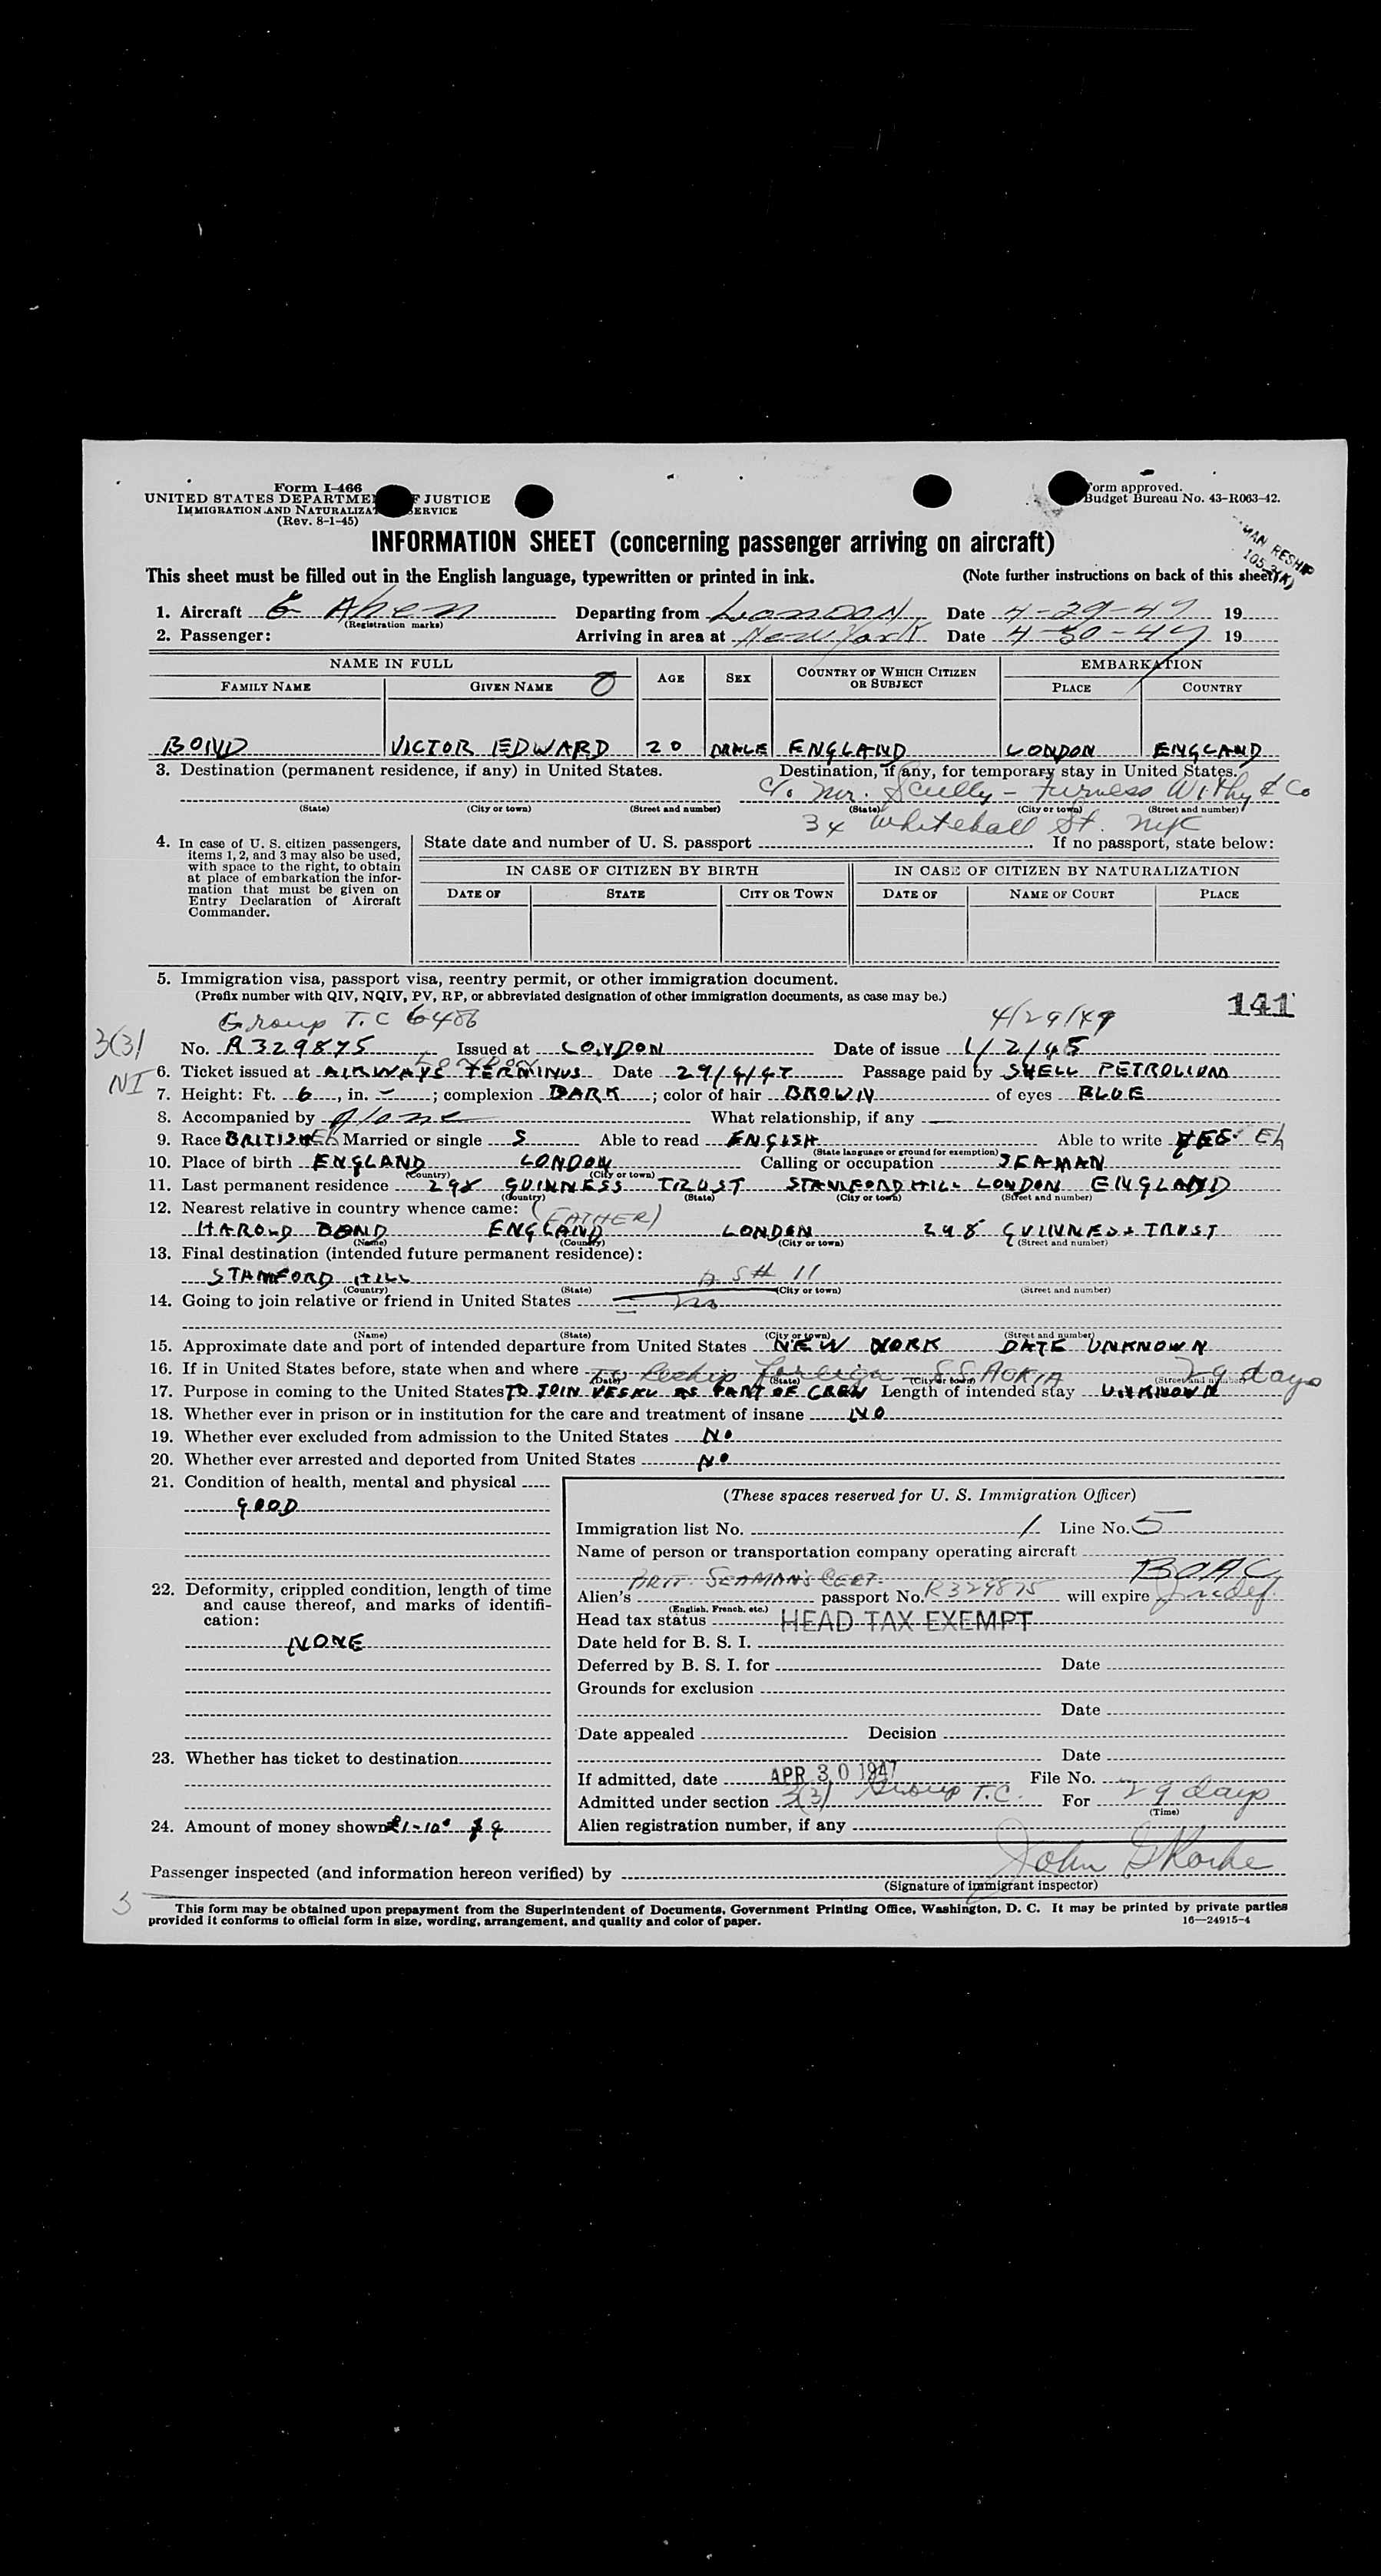 Form I-466
UNITED STATES DEPARTME F JUSTICE
IMMIGRATION AND NATURALIZAT ERVICE
(Rev. 8-1-45)
orm approved.
Budget Bureau No. 43-R063-42.
INFORMATION SHEET (concerning passenger arriving on aircraft)
MAN RESHIP
105.3(K)
This sheet must be filled out in the English language, typewritten or printed in ink. (Note further instructions on back of this sheet)
1. Aircraft G Ahen Departing from London Date 4-29-47 19
(Registration marks)
2. Passenger: Arriving in area at New York Date 4-30-47 19
NAME IN FULL AGE SEX COUNTRY OF WHICH CITIZEN OR SUBJECT EMBARKATION
FAMILY NAME GIVEN NAME PLACE COUNTRY
BOND VICTOR EDWARD 20 MALE ENGLAND LONDON ENGLAND
3. Destination (permanent residence, if any) in United States. Destination, if any, for temporary stay in United States.
c/o Mr. Scully - Furness Withy & Co
(State) (City or town) (Street and number) (State) (City or town) (Street and number)
34 Whitehall St. NYC
4. In case of U. S. citizen passengers, items 1, 2, and 3 may also be used, with space to the right, to obtain at place of embarkation the information that must be given on Entry Declaration of Aircraft Commander.
State date and number of U. S. passport If no passport, state below:
IN CASE OF CITIZEN BY BIRTH IN CASE OF CITIZEN BY NATURALIZATION
DATE OF STATE CITY OR TOWN DATE OF NAME OF COURT PLACE
5. Immigration visa, passport visa, reentry permit, or other immigration document.
(Prefix number with QIV, NQIV, PV, RP, or abbreviated designation of other immigration documents, as case may be.)
141
Group T.C 6486 4/29/47
3(3)
No. R329875 Issued at LONDON Date of issue 1/2/45
NI
LONDON
6. Ticket issued at AIRWAYS TERMINUS Date 29/4/47 Passage paid by SHELL PETROLIUM
7. Height: Ft. 6, in. -; complexion DARK; color of hair BROWN of eyes BLUE
8. Accompanied by Alone What relationship, if any
9. Race BRITISH Eh Married or single S Able to read ENGISH Able to write YES Eh
(State language or ground for exemption)
10. Place of birth ENGLAND LONDON Calling or occupation SEAMAN
(Country) (City or town)
11. Last permanent residence 298 GUINNESS TRUST STAMFORD HILL LONDON ENGLAND
(Country) (State) (City or town) (Street and number)
12. Nearest relative in country whence came: (FATHER)
HAROLD BOND ENGLAND LONDON 298 GUINNESS TRUST
(Name) (Country) (City or town) (Street and number)
13. Final destination (intended future permanent residence):
STAMFORD HILL A S# 11
(Country) (State) (City or town) (Street and number)
14. Going to join relative or friend in United States no
(Name) (State) (City or town) (Street and number)
15. Approximate date and port of intended departure from United States NEW YORK DATE UNKNOWN
16. If in United States before, state when and where To Reship foreign - SS 29 days
(Date) (State) (City or town) (Street and number)
17. Purpose in coming to the United States TO JOIN VESEL AS PART OF CREW Length of intended stay UNKNOWN
18. Whether ever in prison or in institution for the care and treatment of insane NO
19. Whether ever excluded from admission to the United States NO
20. Whether ever arrested and deported from United States NO
21. Condition of health, mental and physical
GOOD
22. Deformity, crippled condition, length of time and cause thereof, and marks of identification:
NONE
23. Whether has ticket to destination
24. Amount of money shown £1-10s $9
(These spaces reserved for U. S. Immigration Officer)
Immigration list No. 1 Line No. 5
Name of person or transportation company operating aircraft
BOAC
BRIT. SEAMAN'S CERT.
Alien's passport No. R329875 will expire Indef.
(English, French, etc.)
Head tax status HEAD TAX EXEMPT
Date held for B. S. I.
Deferred by B. S. I. for Date
Grounds for exclusion
Date
Date appealed Decision
Date
If admitted, date APR 30 1947 File No.
Admitted under section 3(3) Group T.C. For 29 days
(Time)
Alien registration number, if any
Passenger inspected (and information hereon verified) by John
(Signature of immigrant inspector)
This form may be obtained upon prepayment from the Superintendent of Documents, Government Printing Office, Washington, D. C. It may be printed by private parties
provided it conforms to official form in size, wording, arrangement, and quality and color of paper. 16—24915-4